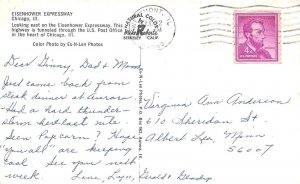 EISENHOWER EXPRESSWAY
Chicago, Ill.
Looking east on the Eisenhower Expressway. This
highway is tunneled through the U.S. Post Office
in the heart of Chicago, Ill.
Color Photo by Es-N-Len Photos
NATURAL COLOR
BERKELEY CALIF.
4¢
Dear Ginny, Dad & Mom
Just came back from
steak dinner at Aurora
Had a hard thunder-
storm here last nite.
Seen Popcorn? Hope
"you all" are keeping
cool. See you next
week. Love, Lyn, Gerald & Gladys
Virginia Ann Anderson
Sheridan St
Albert Lea Minn
56007